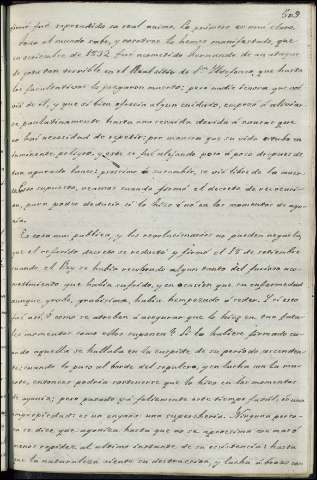 309
firmó fué reprendido su real ánimo. La primera es muy clara,
todo el mundo sabe, y nosotros lo hemos manifestado que
en setiembre de 1832, fué acometido Fernando de un ataque
de gota tan terrible en el Real sitio de Sn Ildefonso, que hasta
los facultativos le juzgaron muerto; pero nadie ignora que vol
vió de él, y que si bien ofrecia algun cuidado, empezó á aliviar
se paulatinamente hasta una recaida devida á causas que
no hai necesidad de repetir; por manera que su vida estuvo en
inminente peligro, y este se fué alejando poco á poco despues de
un apurado lance: proximo á sucumbir, se vió libre de la muer
te. Esto supuesto, veamos cuando firmó el decreto de revocacion,
para poder deducir si lo hizo ó nó en los momentos de ago
nía.
Es cosa muy publica, y los revolucionarios no pueden negarla,
que el referido decreto se redactó y firmó el 18 de setiembre
cuando el Rey se habia recobrado algun tanto del furioso aco
metimiento que habia sufrido, y en ocasion que su enfermedad
aunque grave, gravisima, habia empezado á ceder. Y si esto
fué asi ¿ como se atreben á asegurar que lo hizo en esos fata
les momentos como ellos suponen? Si lo hubiese firmado cu
ando aquella se hallaba en la cuspide de su periodo ascenden
te; cuando lo puso al borde del sepulcro, y en lucha con la mu
erte, entonces podria sostenerse que lo hizo en los momentos
de agonia; pero pasado ya felizmente este tiempo fatal, es una
impropiedad; es un engaño: una superchería. Ninguna perso
na se dice que agoniza hasta que no se aproxima con mas ó
menos rapidez al ultimo instante de su existencia: hasta
que la naturaleza siente su destruccion, y lucha á brazo con